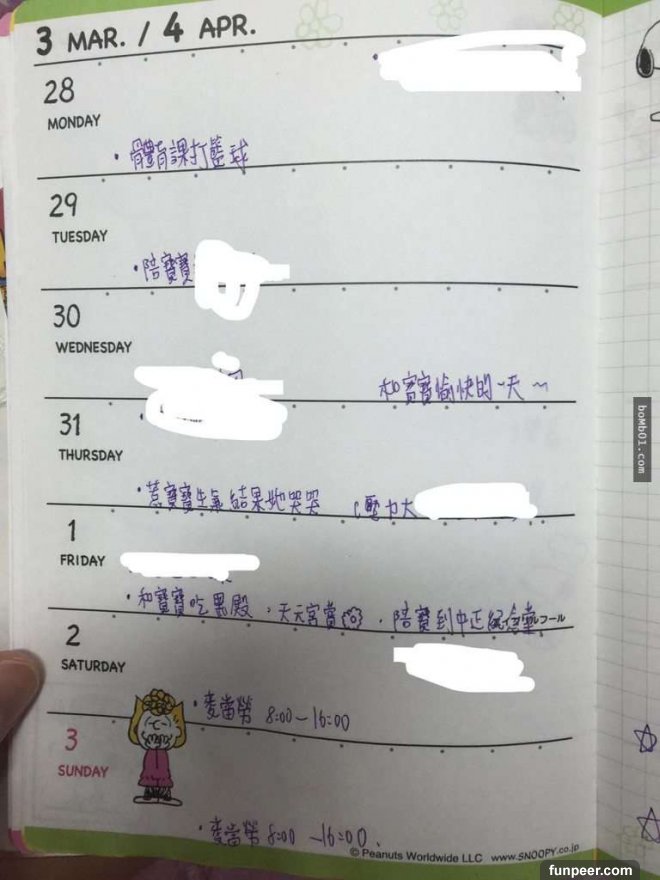 3 MAR. / 4 APR.
28
MONDAY
・體育課打籃球
29
TUESDAY
・陪寶寶
30
WEDNESDAY
和寶寶愉快的一天~
31
THURSDAY
・惹寶寶生氣結果她哭哭 (壓力大
1
FRIDAY
・和寶寶吃黑殿,天元宮賞 ・陪寶到中正紀念堂
2
SATURDAY
・麥當勞 8:00-16:00
3
SUNDAY
・麥當勞 8:00-16:00.
© Peanuts Worldwide LLC www.SNOOPY.co.jp
bomb01.com
funpeer.com